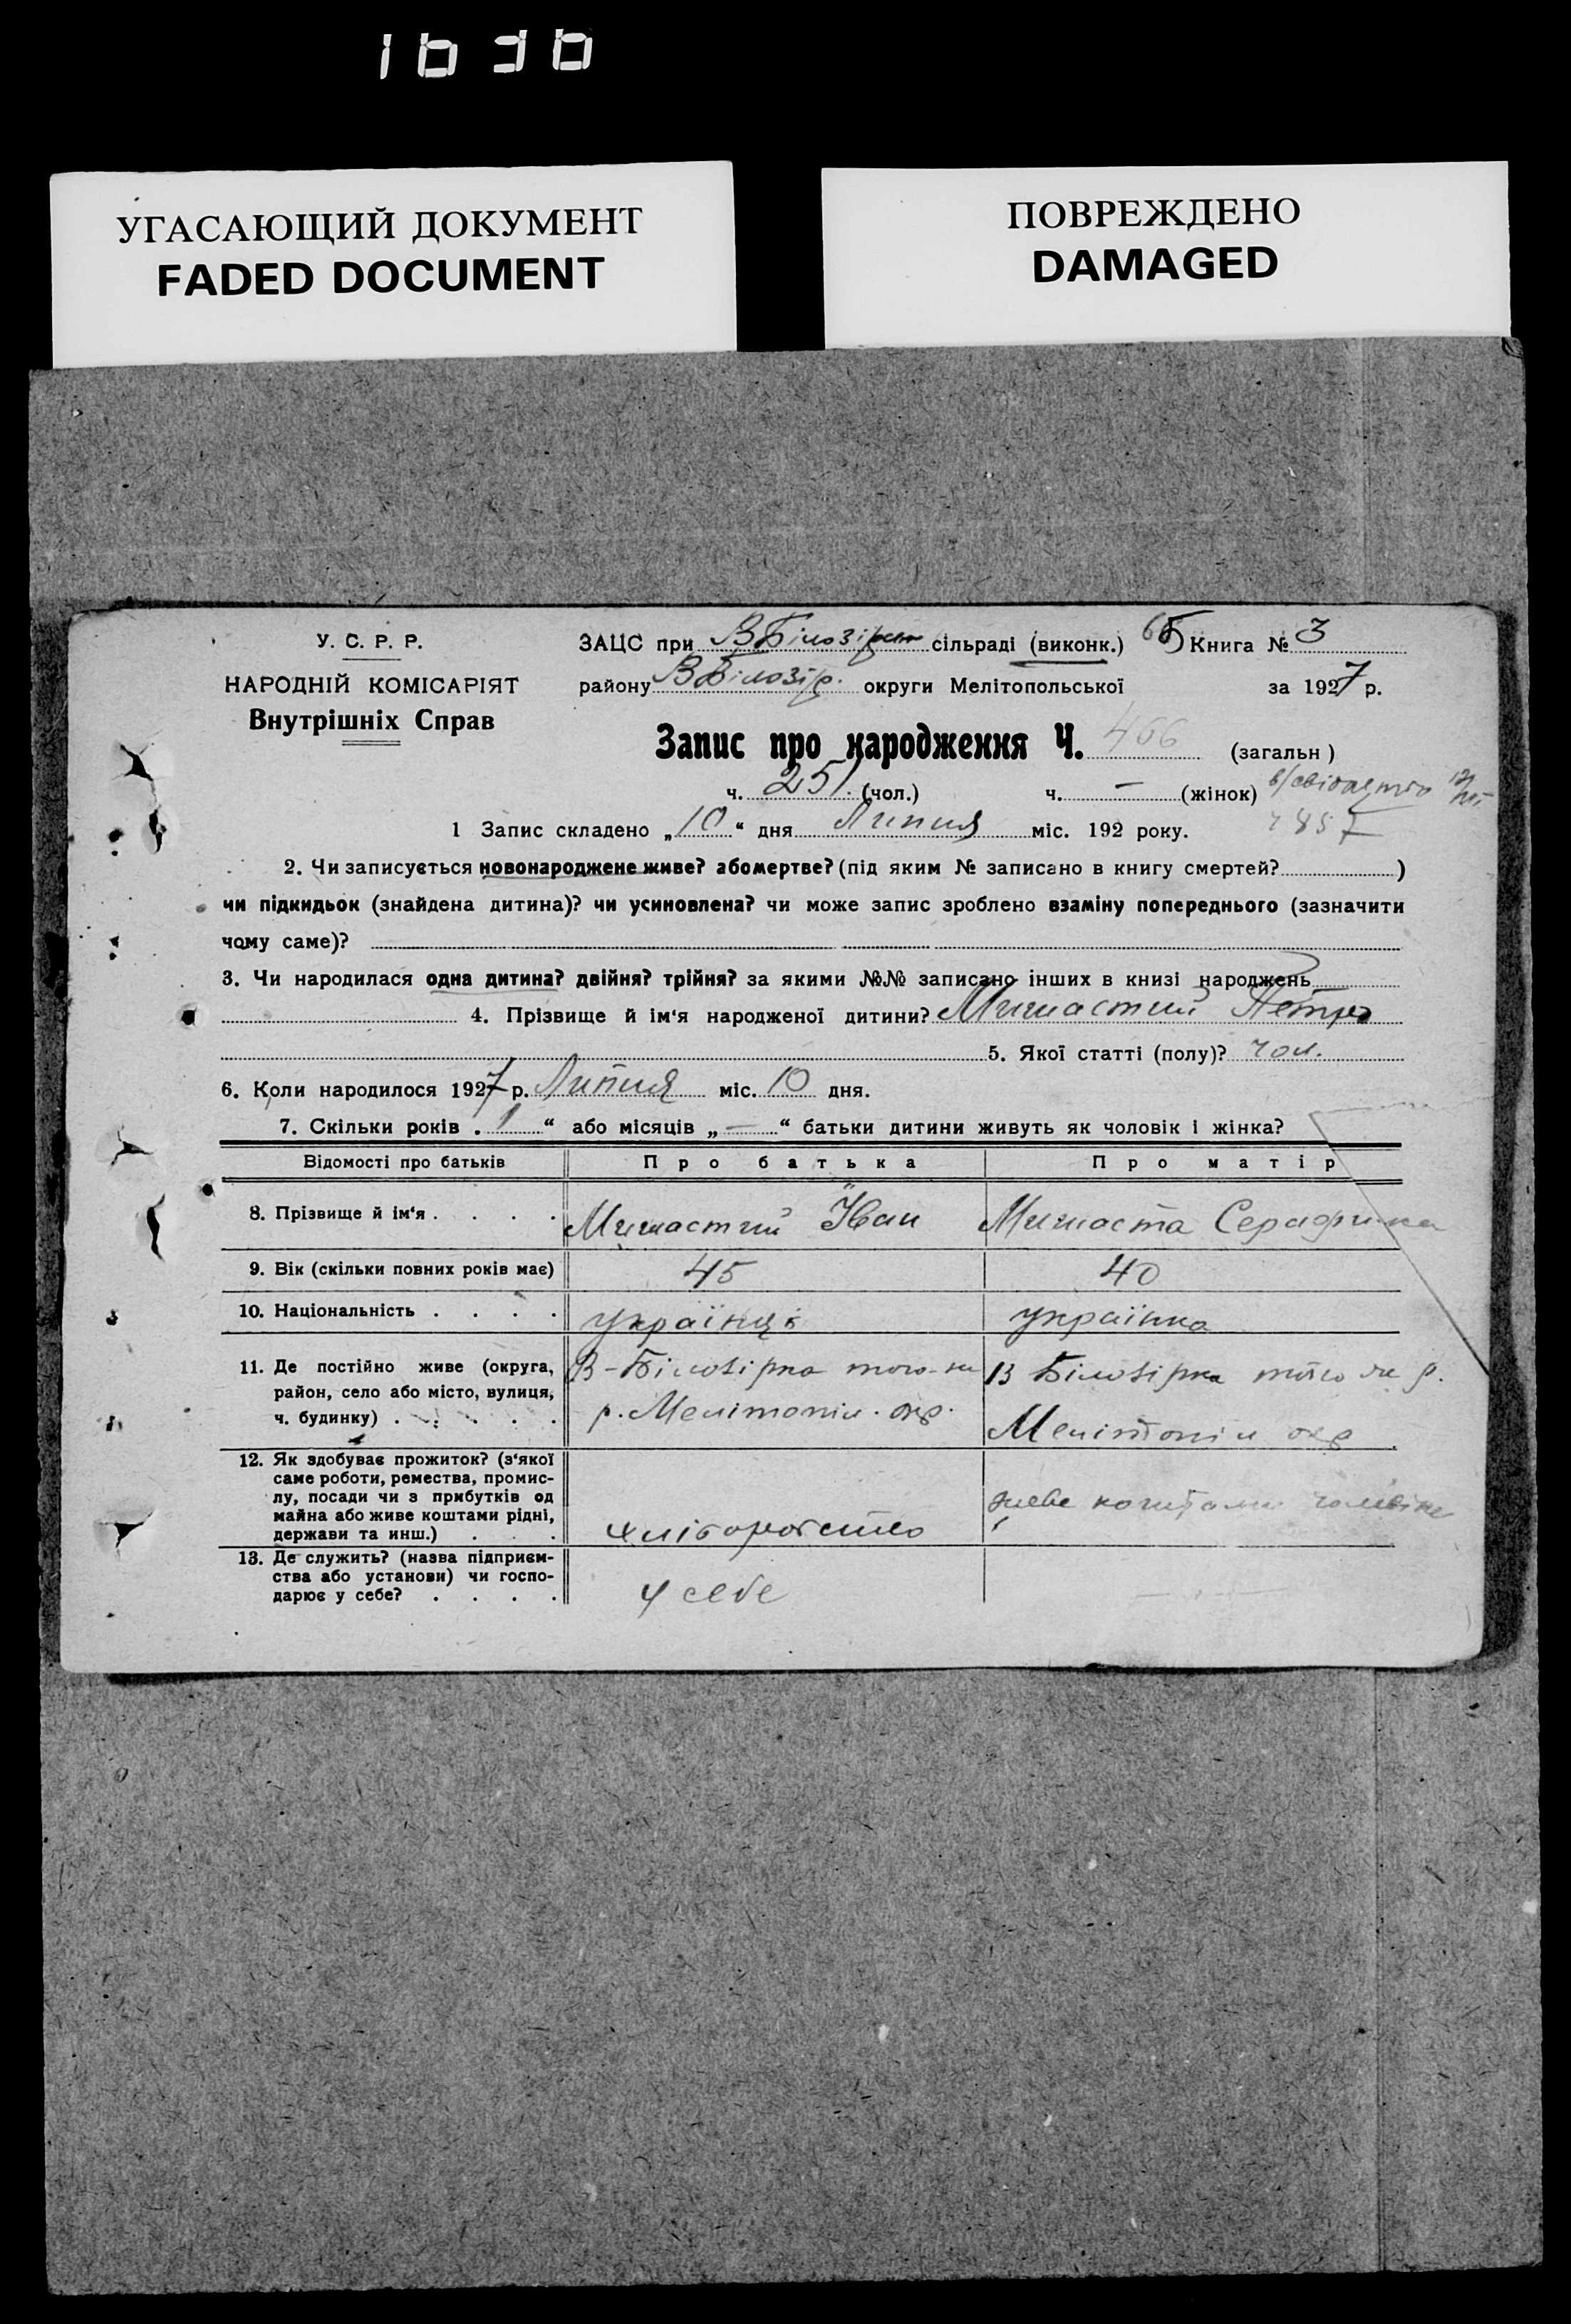 1636
УГАСАЮЩИЙ ДОКУМЕНТ
FADED DOCUMENT
ПОВРЕЖДЕНО
DAMAGED
У. С. Р. Р.
НАРОДНІЙ КОМІСАРІЯТ
Внутрішніх Справ
ЗАЦС при В Білозірськ сільраді (виконк.) Книга № 3
району В Білозір. округи Мелітопольської за 1927 р.
Запис про народження Ч. 466 (загальн)
ч. 251. (чол.) ч. — (жінок)
1 Запис складено „10“ дня Липня міс. 192 року.
2. Чи записується новонароджене живе? або мертве? (під яким № записано в книгу смертей? )
чи підкидьок (знайдена дитина)? чи усиновлена? чи може запис зроблено взаміну попереднього (зазначити
чому саме)?
3. Чи народилася одна дитина? двійня? трійня? за якими №№ записано інших в книзі народжень
4. Прізвище й ім‘я народженої дитини? Мишастий Петро
5. Якої статті (полу)? чол.
6. Коли народилося 1927 р. Липня міс. 10 дня.
7. Скільки років . 1 “ або місяців „ — “ батьки дитини живуть як чоловік і жінка?
Відомості про батьків Про батька Про матір
8. Прізвище й ім‘я . . . . Мишастий Іван Мишаста Серафима
9. Вік (скільки повних років має) 45 40
10. Національність . . . . українці українка
11. Де постійно живе (округа,
район, село або місто, вулиця,
ч. будинку) . . . . .
В-Білозірка того-ж
р. Мелітопіл. окр.
В Білозірка того ж р.
Мелітопіл окр
12. Як здобуває прожиток? (з‘якої
саме роботи, ремества, промис-
лу, посади чи з прибутків од
майна або живе коштами рідні,
держави та инш.) . . .
хліборобство
живе коштами чоловіка
13. Де служить? (назва підприєм-
ства або установи) чи госпо-
дарює у себе? . . . .
у себе